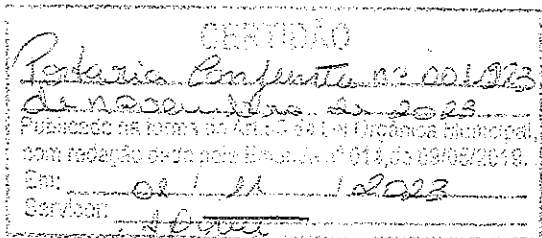 CERTIDÃO
Portaria Conjunta nº 001/2023
de novembro de 2023
Publicado na forma do Art. da Lei Orgânica Municipal,
com redação dada pela Emenda nº 011, de 09/05/2019.
Em: 01 / 11 / 2023
Servidor: